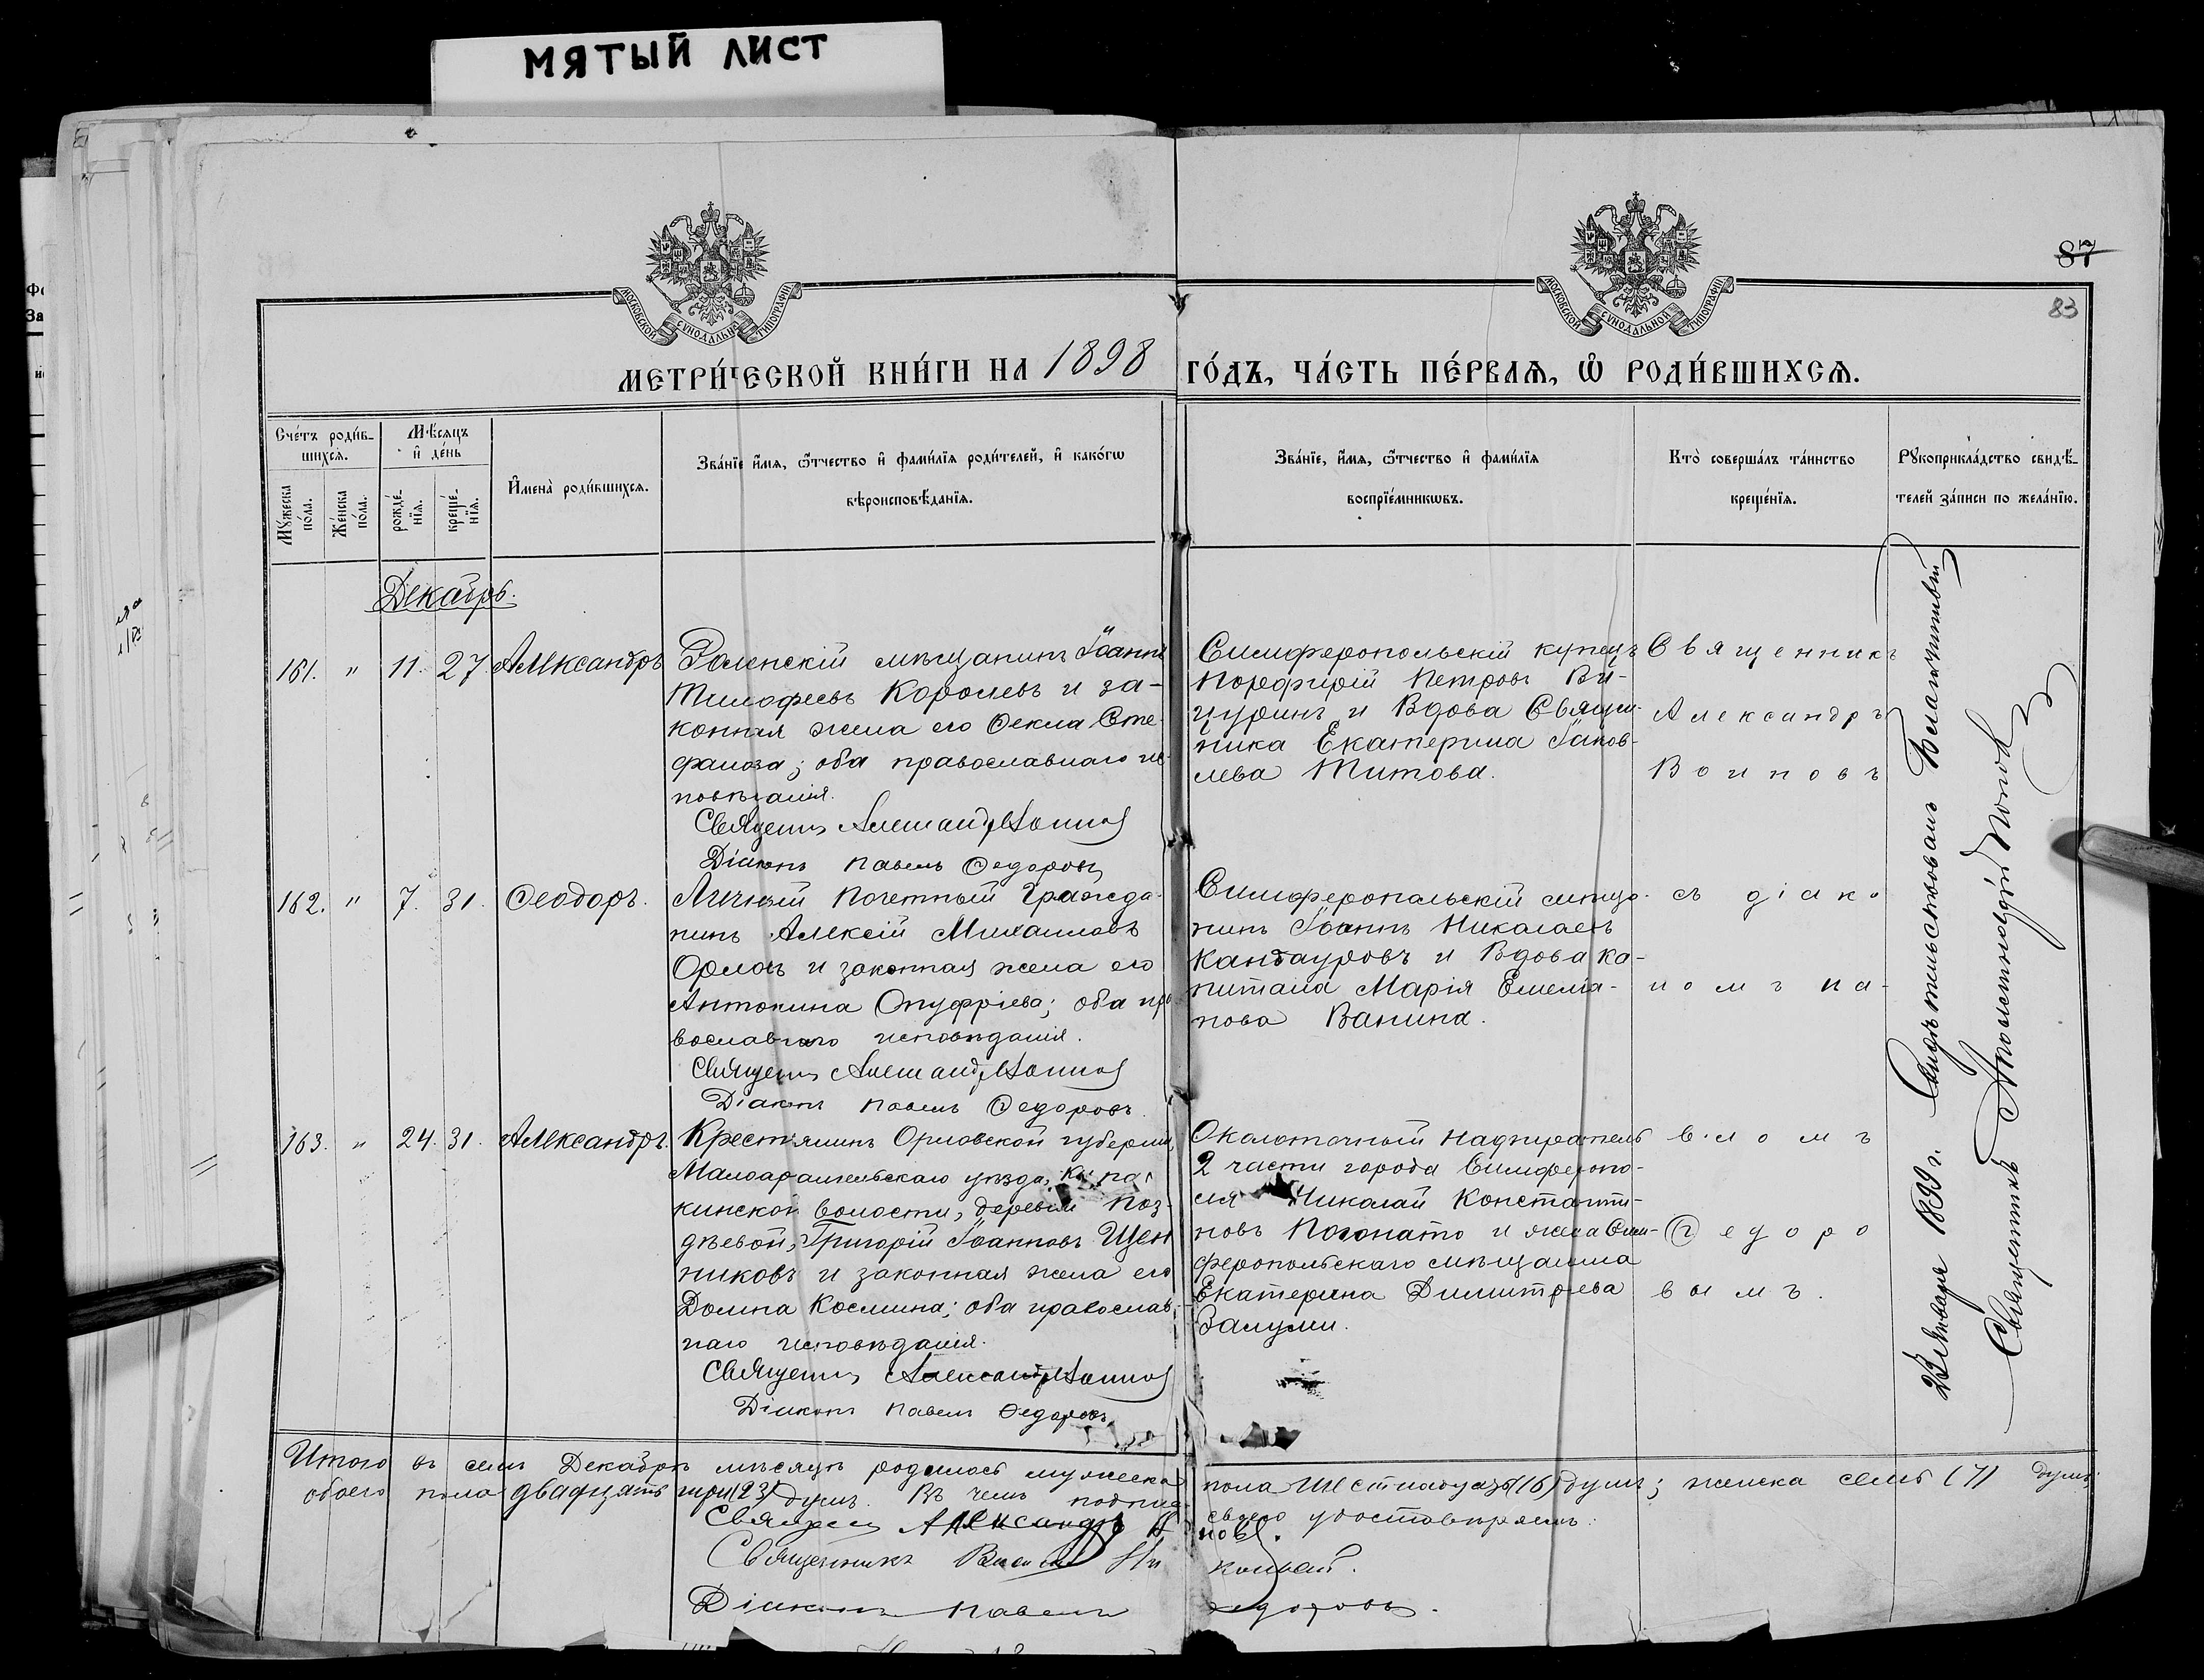 МЯТЫЙ ЛИСТ
МОСКОВСКОЙ СѴНОДАЛЬНОЙ ТИПОГРАФІИ
МОСКОВСКОЙ СѴНОДАЛЬНОЙ ТИПОГРАФІИ
87
83
МЕТРИ́ЧЕСКОЙ КНИ́ГИ НА 1898
ГО́ДЪ, ЧА́СТЬ ПЕ́РВАЯ, Ѡ҆ РОДИ́ВШИХСѦ.
Сче́тъ роди́в-
шихсѧ.
Мꙋ́жеска по́ла.
Же́нска по́ла.
Мѣ́сяцъ
и҆ де́нь
рожде́-
нїя.
креще́-
нїя.
И҆мена̀ роди́вшихсѧ.
Зва́нїе и҆́мѧ, ѻ҆́тчество и҆ фами́лїѧ роди́телей, и҆ како́гѡ
вѣроисповѣ́данїѧ.
Зва́нїе, и҆́мѧ, ѻ҆́тчество и҆ фами́лїѧ
воспрїе́мникѡвъ.
Кто̀ соверша́лъ та́инство
креще́нїѧ.
Рꙋкоприкла́дство свидѣ́-
телей за́писи по жела́нїю.
Декабрь.
161. " 11. 27. Александръ
мѣщанинъ Іоаннъ
Тимофеевъ Королевъ и за-
конная жена его Ѳекла Сте-
фанова; оба православнаго ис-
повѣданія.
Священ
Діаконъ Павелъ Ѳедоровъ
Симферопольскій купецъ
Порфирій Петровъ Ви-
цуринъ и Вдова Священ-
ника Екатерина Іаков-
лева Титова.
Священникъ
Александръ
162. " 7. 31. Ѳеодоръ.
Личный Почетный Гражда-
нинъ Алексій Михаиловъ
Орловъ и законная жена его
Антонина Онуфріева; оба пра
вославнаго исповѣданія.
Священ
Діаконъ Павелъ Ѳедоровъ
Симферопольскій мѣща-
нинъ Іоаннъ Николаевъ
Кандауровъ и Вдова ка-
питана Марія Емелiа-
нова Ванина.
съ діако
номъ Па-
163. " 24. 31. Александръ.
Крестьянинъ Орловской губерніи,
Малоархангельскаго уѣзда,
кинской волости, деревни Поз-
дѣевой, Григорій Іоанновъ Щен
никовъ и законная жена его
Домна Космина; оба православ-
наго исповѣданія.
Священ
Діаконъ Павелъ Ѳедоровъ
Околоточный Надзиратель
2 части города Симферопо-
ля Николай Константи-
новъ Погонато и жена Сим-
феропольскаго мѣщанина
Екатерина Димитріева
вломъ
Ѳедоро
вымъ.
1899 г. Свидѣтельствовалъ Благочинный
Священникъ Аполлинарій Поповъ
Итого въ семъ Декабрѣ мѣсяцѣ родилось мужеска пола шестнадцать (16) душъ; женска семь (7) душъ;
обоего пола двадцать три (23) душъ. Въ чемъ подписью своею удостовѣряемъ:
Священ Александръ
Священникъ
Діаконъ Павелъ Ѳедоровъ.